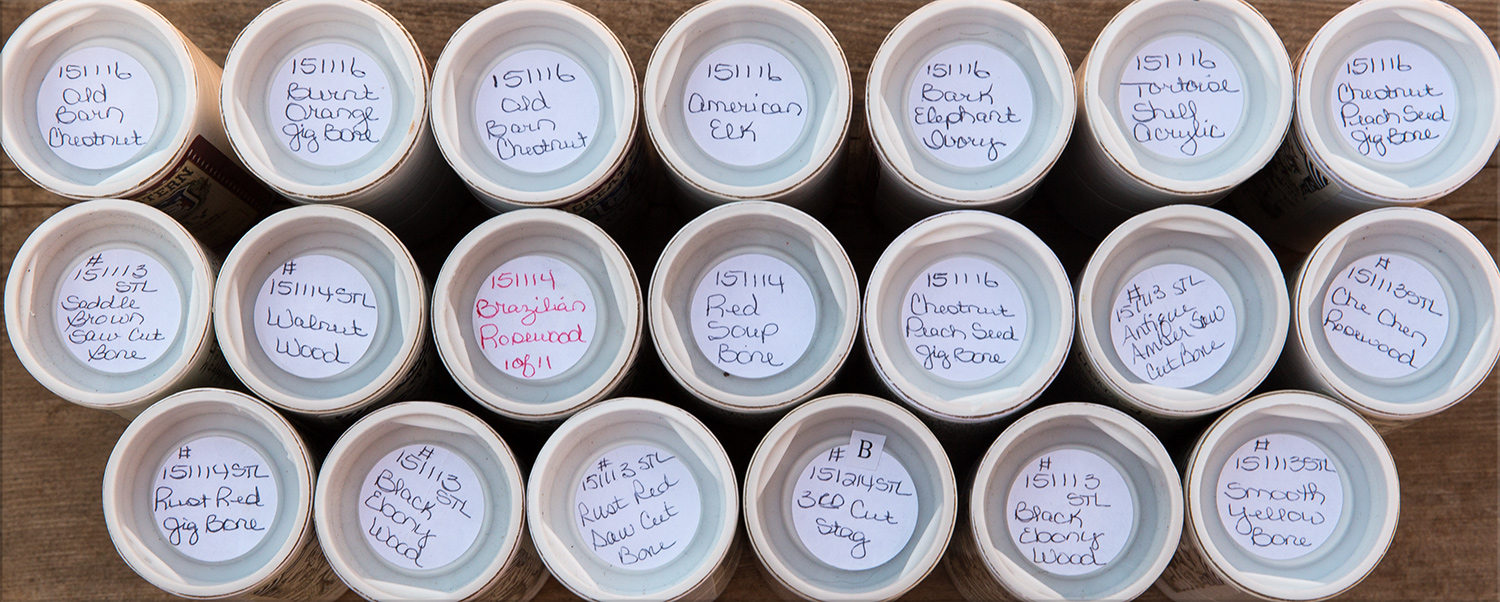 151116
Old
Barn
Chestnut
151116
Burnt
Orange
Jig Bone
151116
Old
Barn
Chestnut
151116
American
Elk
151116
Bark
Elephant
Ivory
151116
Tortoise
Shell
Acrylic
151116
Chestnut
Peach Seed
Jig Bone
TERN
#
151113
STL
Saddle
Brown
Saw Cut
Bone
#
151114 STL
Walnut
Wood
151114
Brazilian
Rosewood
1 of 11
151114
Red
Soup
Bone
151116
Chestnut
Peach Seed
Jig Bone
#
151113 STL
Antique
Amber Saw
Cut Bone
#
151113 STL
Che Chen
Rosewood
#
151114 STL
Rust Red
Jig Bone
#
151113
STL
Black
Ebony
Wood
#
151113 STL
Rust Red
Saw Cut
Bone
B
#
151214 STL
3rd Cut
Stag
#
151113
STL
Black
Ebony
Wood
#
151113 STL
Smooth
Yellow
Bone